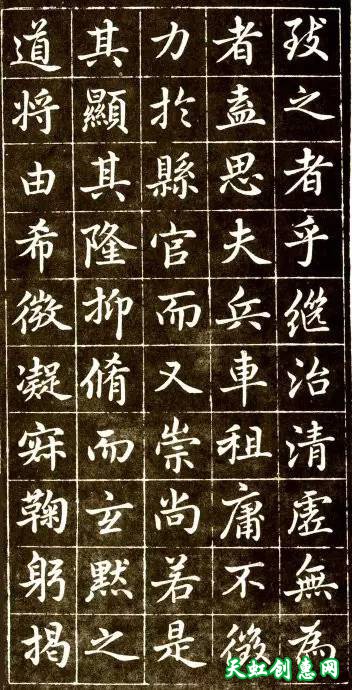 致之者乎継治清虚無為
者盍思夫兵車租庸不徵
力於縣官而又崇尚若是
其顯其隆抑脩而玄默之
道将由希微凝寂鞠躬揭
天虹创意网